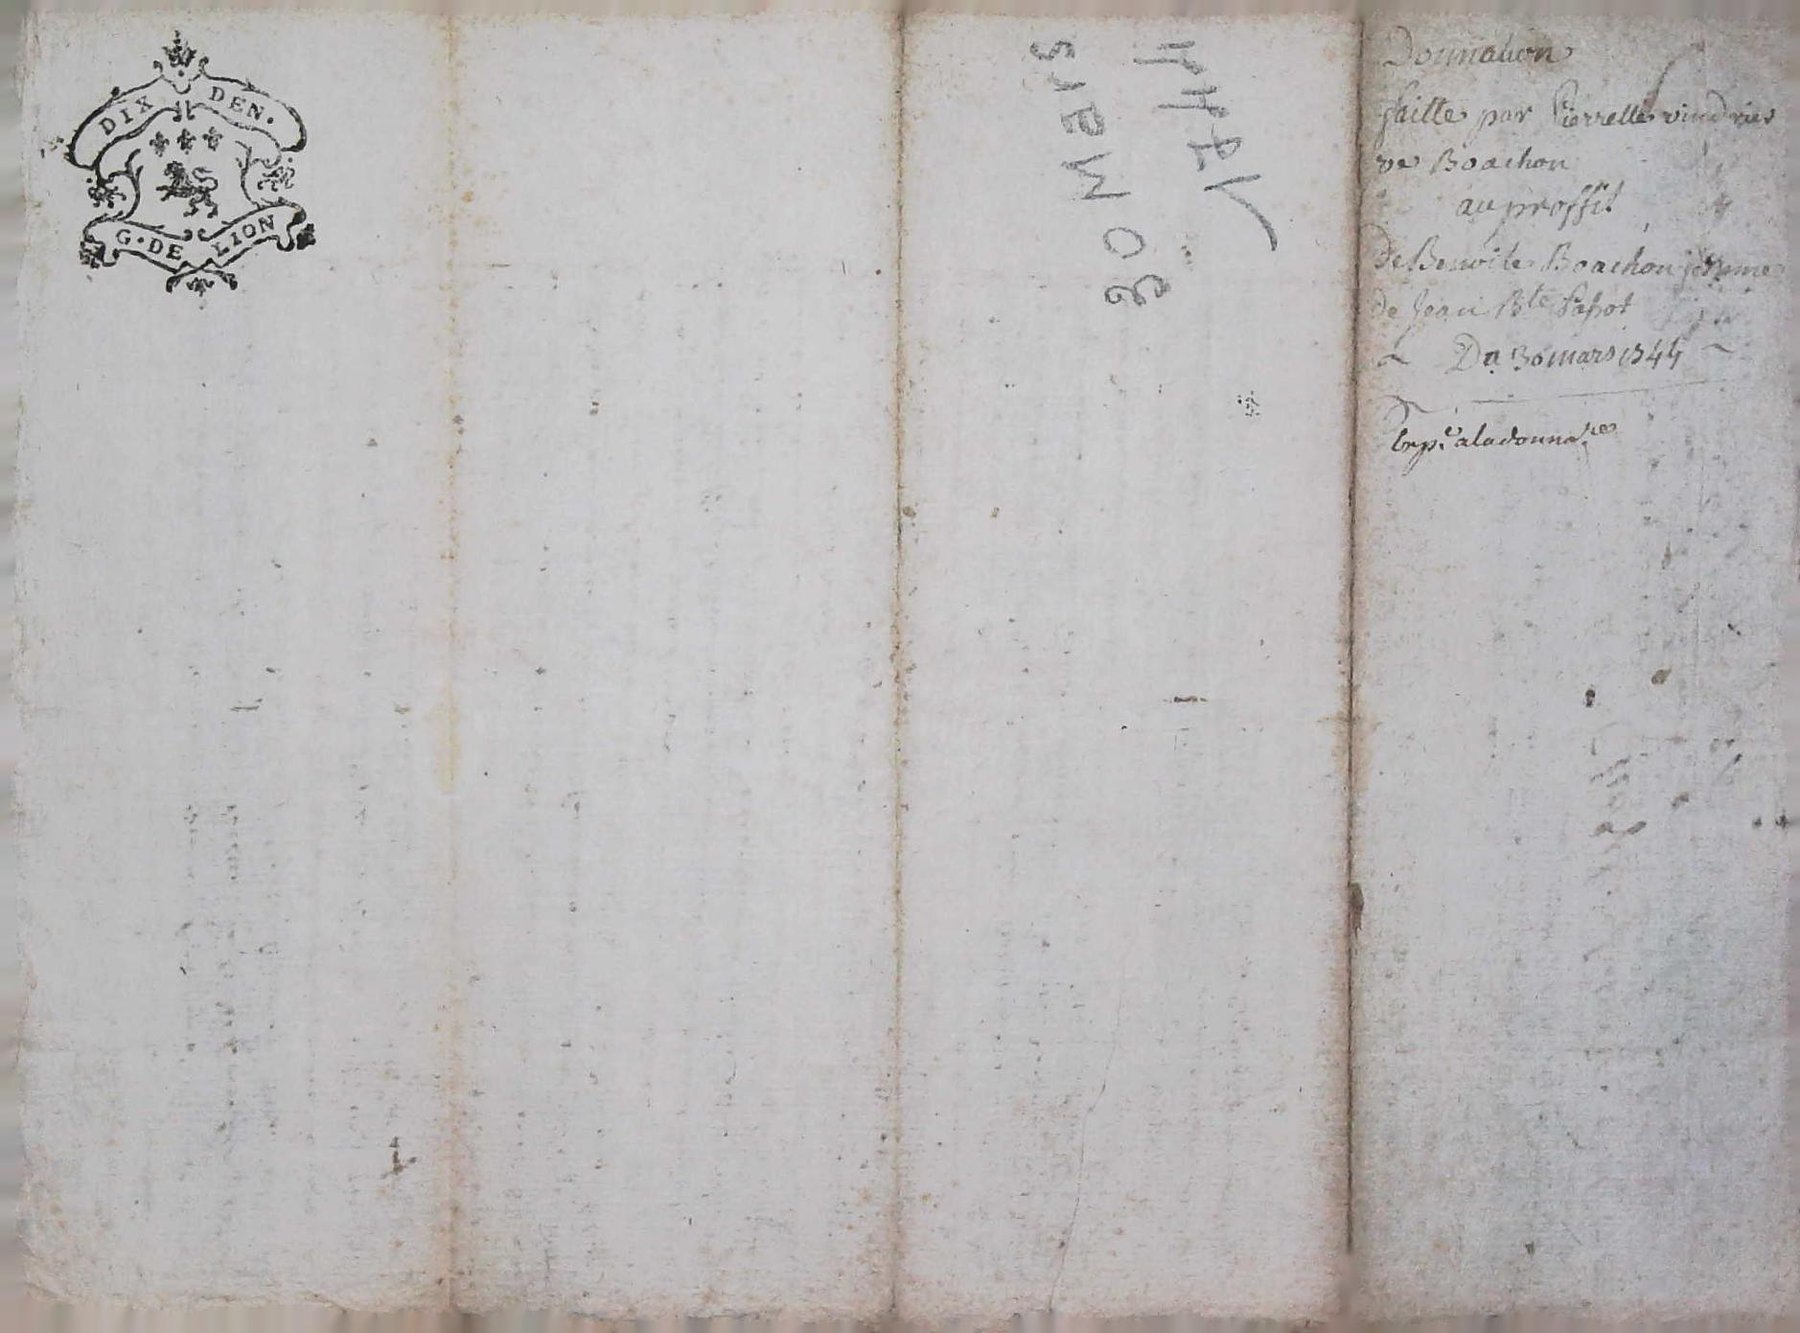 DIX DEN.
G. DE LION
30 Mars
1744
Donnation
faitte par Pierrette vindries
ve Boachon
au proffit
de Benoite Boachon femme
de Jean Bte
Du 30 mars 1744